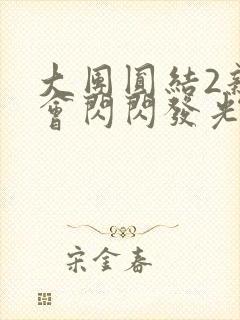 大團圓結2親
會閃閃發光
宋金春